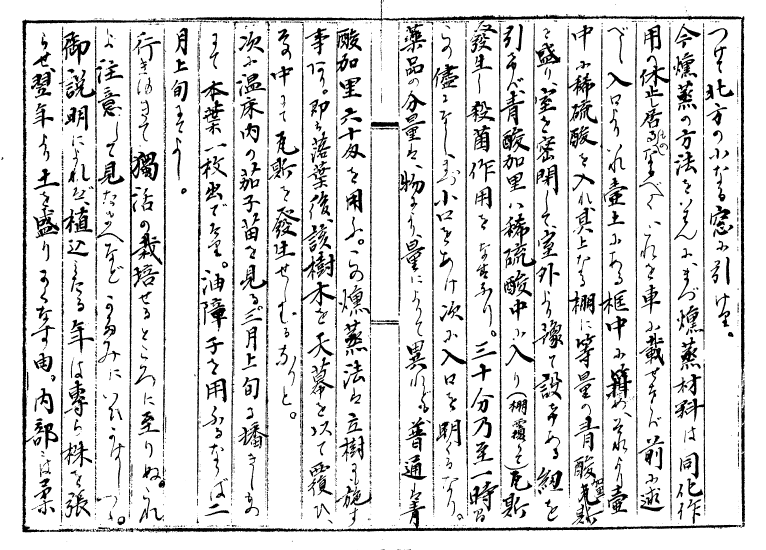 つけて北方の小なる窓に引けり。
今燻蒸の方法をいはんに、まづ燻蒸材料は同化作
用の休止し居る なるべく、これを車に載せ 前に述
べし入口よりいれ壺土にある框中に 、それより壺
中に稀硫酸を入れ其上なる棚に等量の青酸加里
を盛り室を密閉して、室外より豫て設けある紐を
引けば青酸加里は稀硫酸中に入り(棚覆りて)瓦斯
發生し殺菌作用を なり。三十分乃至一時間
この儘になし、まづ小口をあけ次に入口を開くなり。
藥品の分量は、物により、量によりて異れども普通は青
酸加里六十匁を用ふ。この燻蒸法は立樹にも施す
事あり。即ち落葉後、該樹木を天幕を以て覆ひ、
その中にて瓦斯を發生せしむるなりと。
次に温床内の茄子苗を見る。二月上旬に播きしも
にて本葉一枚出でたり。油障子を用ふるならば二
月上旬にてよし。
行きゆきて獨活の栽培せるところに至りぬ。これ
よ注意して見たまへなどかたみにいひかはしつゝ。
御説明によれば、植込たる年は專ら株を張
らせ、翌年より土を盛り なす由。内部には柔